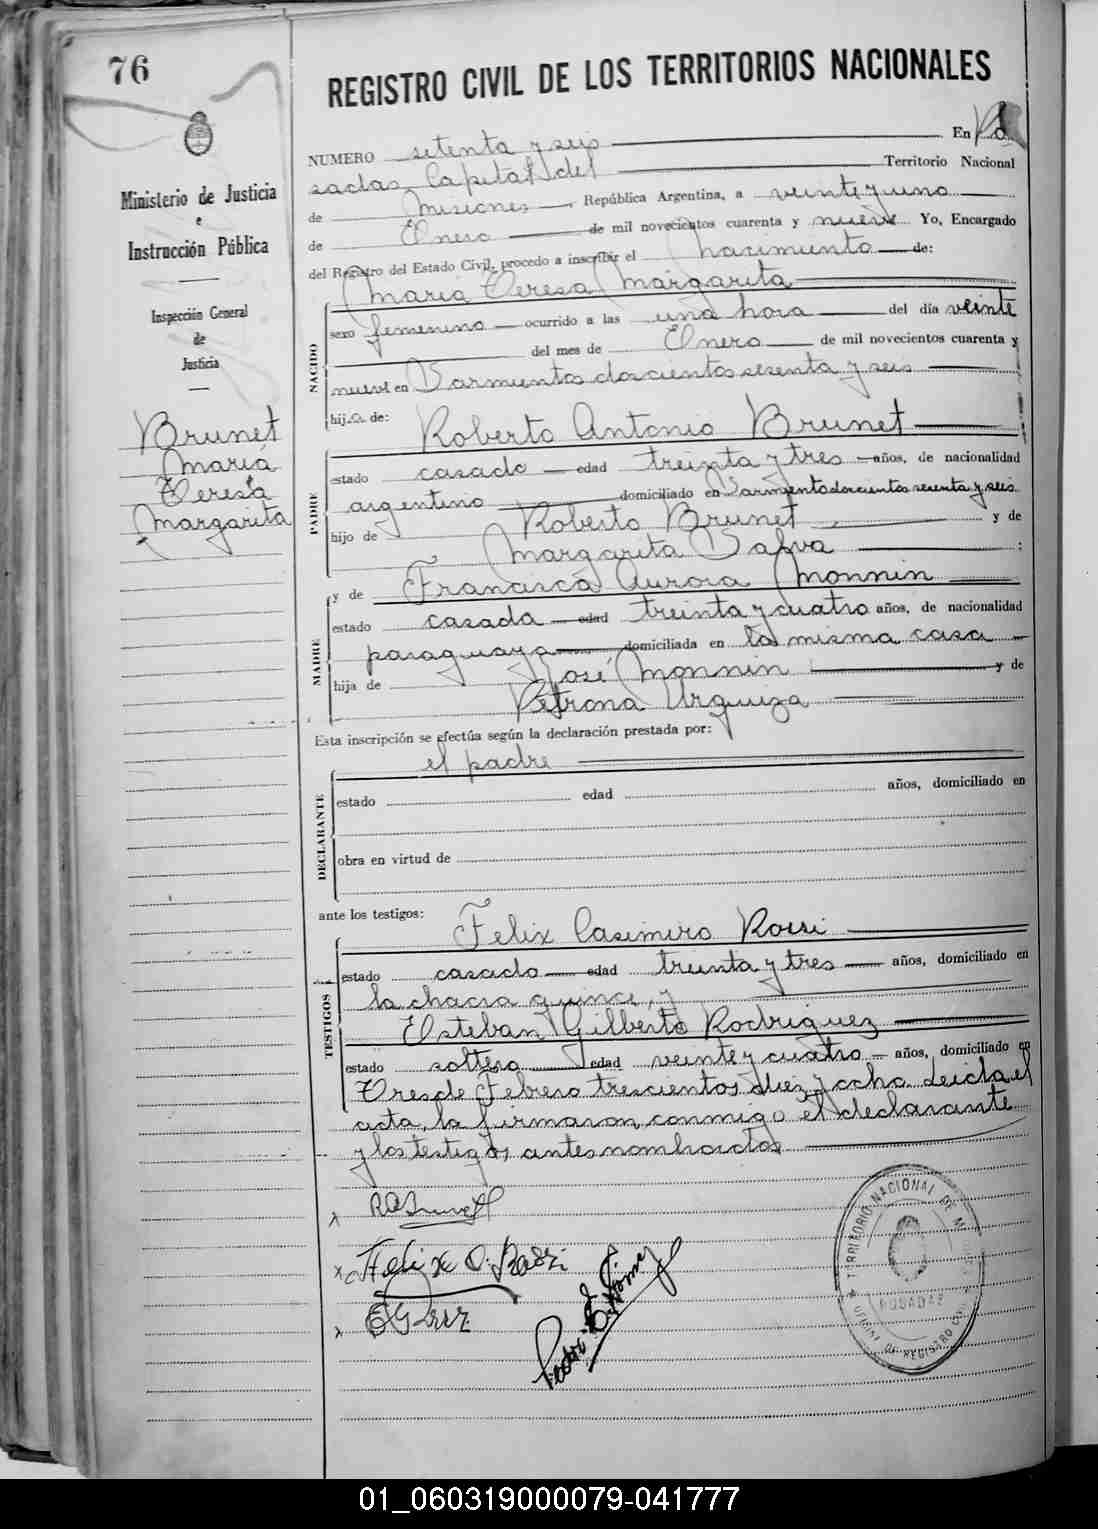 76
REGISTRO CIVIL DE LOS TERRITORIOS NACIONALES
Ministerio de Justicia
e
Instrucción Pública
Inspección General
de
Justicia
Brunet
María
Teresa
Margarita
NUMERO setenta y seis En Po
sadas, Capital del Territorio Nacional
de Misiones, República Argentina, a veinte y uno
de Enero de mil novecientos cuarenta y nueve Yo, Encargado
del Registro del Estado Civil, procedo a inscribir el nacimiento de:
María Teresa Margarita
NACIDO
sexo femenino ocurrido a las una hora del día veinte
del mes de Enero de mil novecientos cuarenta y
nueve en Sarmiento doscientos sesenta y seis
hijo a de: Roberto Antonio Brunet
PADRE
estado casado edad treinta y tres años, de nacionalidad
argentino domiciliado en Sarmiento doscientos sesenta y seis
hijo de Roberto Brunet y de
Margarita :
y de Francisca Aurora Monnin
MADRE
estado casada edad treinta y cuatro años, de nacionalidad
paraguaya domiciliada en la misma casa
hija de José Monnin y de
Petrona Urquiza
Esta inscripción se efectúa según la declaración prestada por:
el padre
DECLARANTE
estado edad años, domiciliado en
obra en virtud de
ante los testigos: Felix Casimiro Rossi
TESTIGOS
estado casado edad treinta y tres años, domiciliado en
la chacra quince, y
Esteban Gilberto Rodriguez
estado soltero edad veinte y cuatro años, domiciliado en
Tres de Febrero trescientos diez y ocho. Leida el
acta, la firmaron, conmigo el declarante
y los testigos antes nombrados
RABrunet
Felix C. Rossi
TERRITORIO NACIONAL DE MISIONES
POSADAS
OFICINA DE REGISTRO CIVIL
01_060319000079-041777